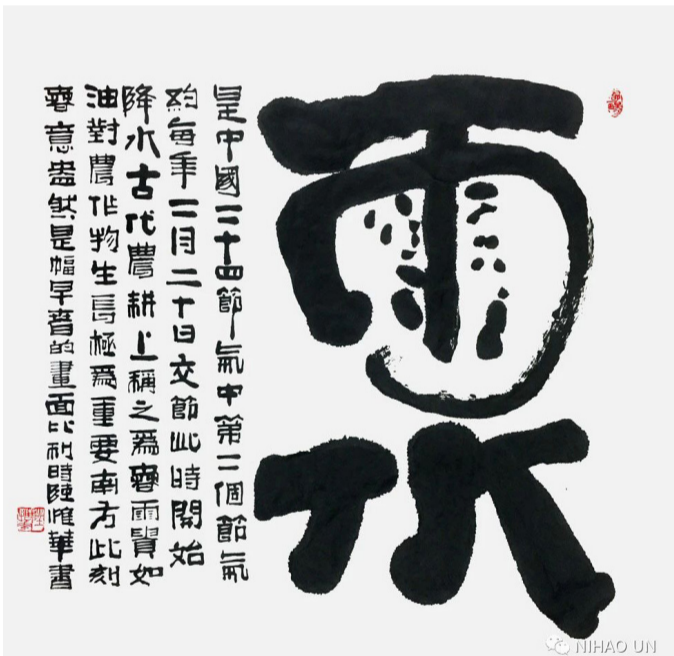 雨水
是中國二十四節氣中第二個節氣
約每年二月二十日交節此時開始
降水古代農耕上稱之爲春雨貴如
油對農作物生長極爲重要南方此刻
春意盎然是幅早春的畫面比利時陸惟華書
NIHAO UN